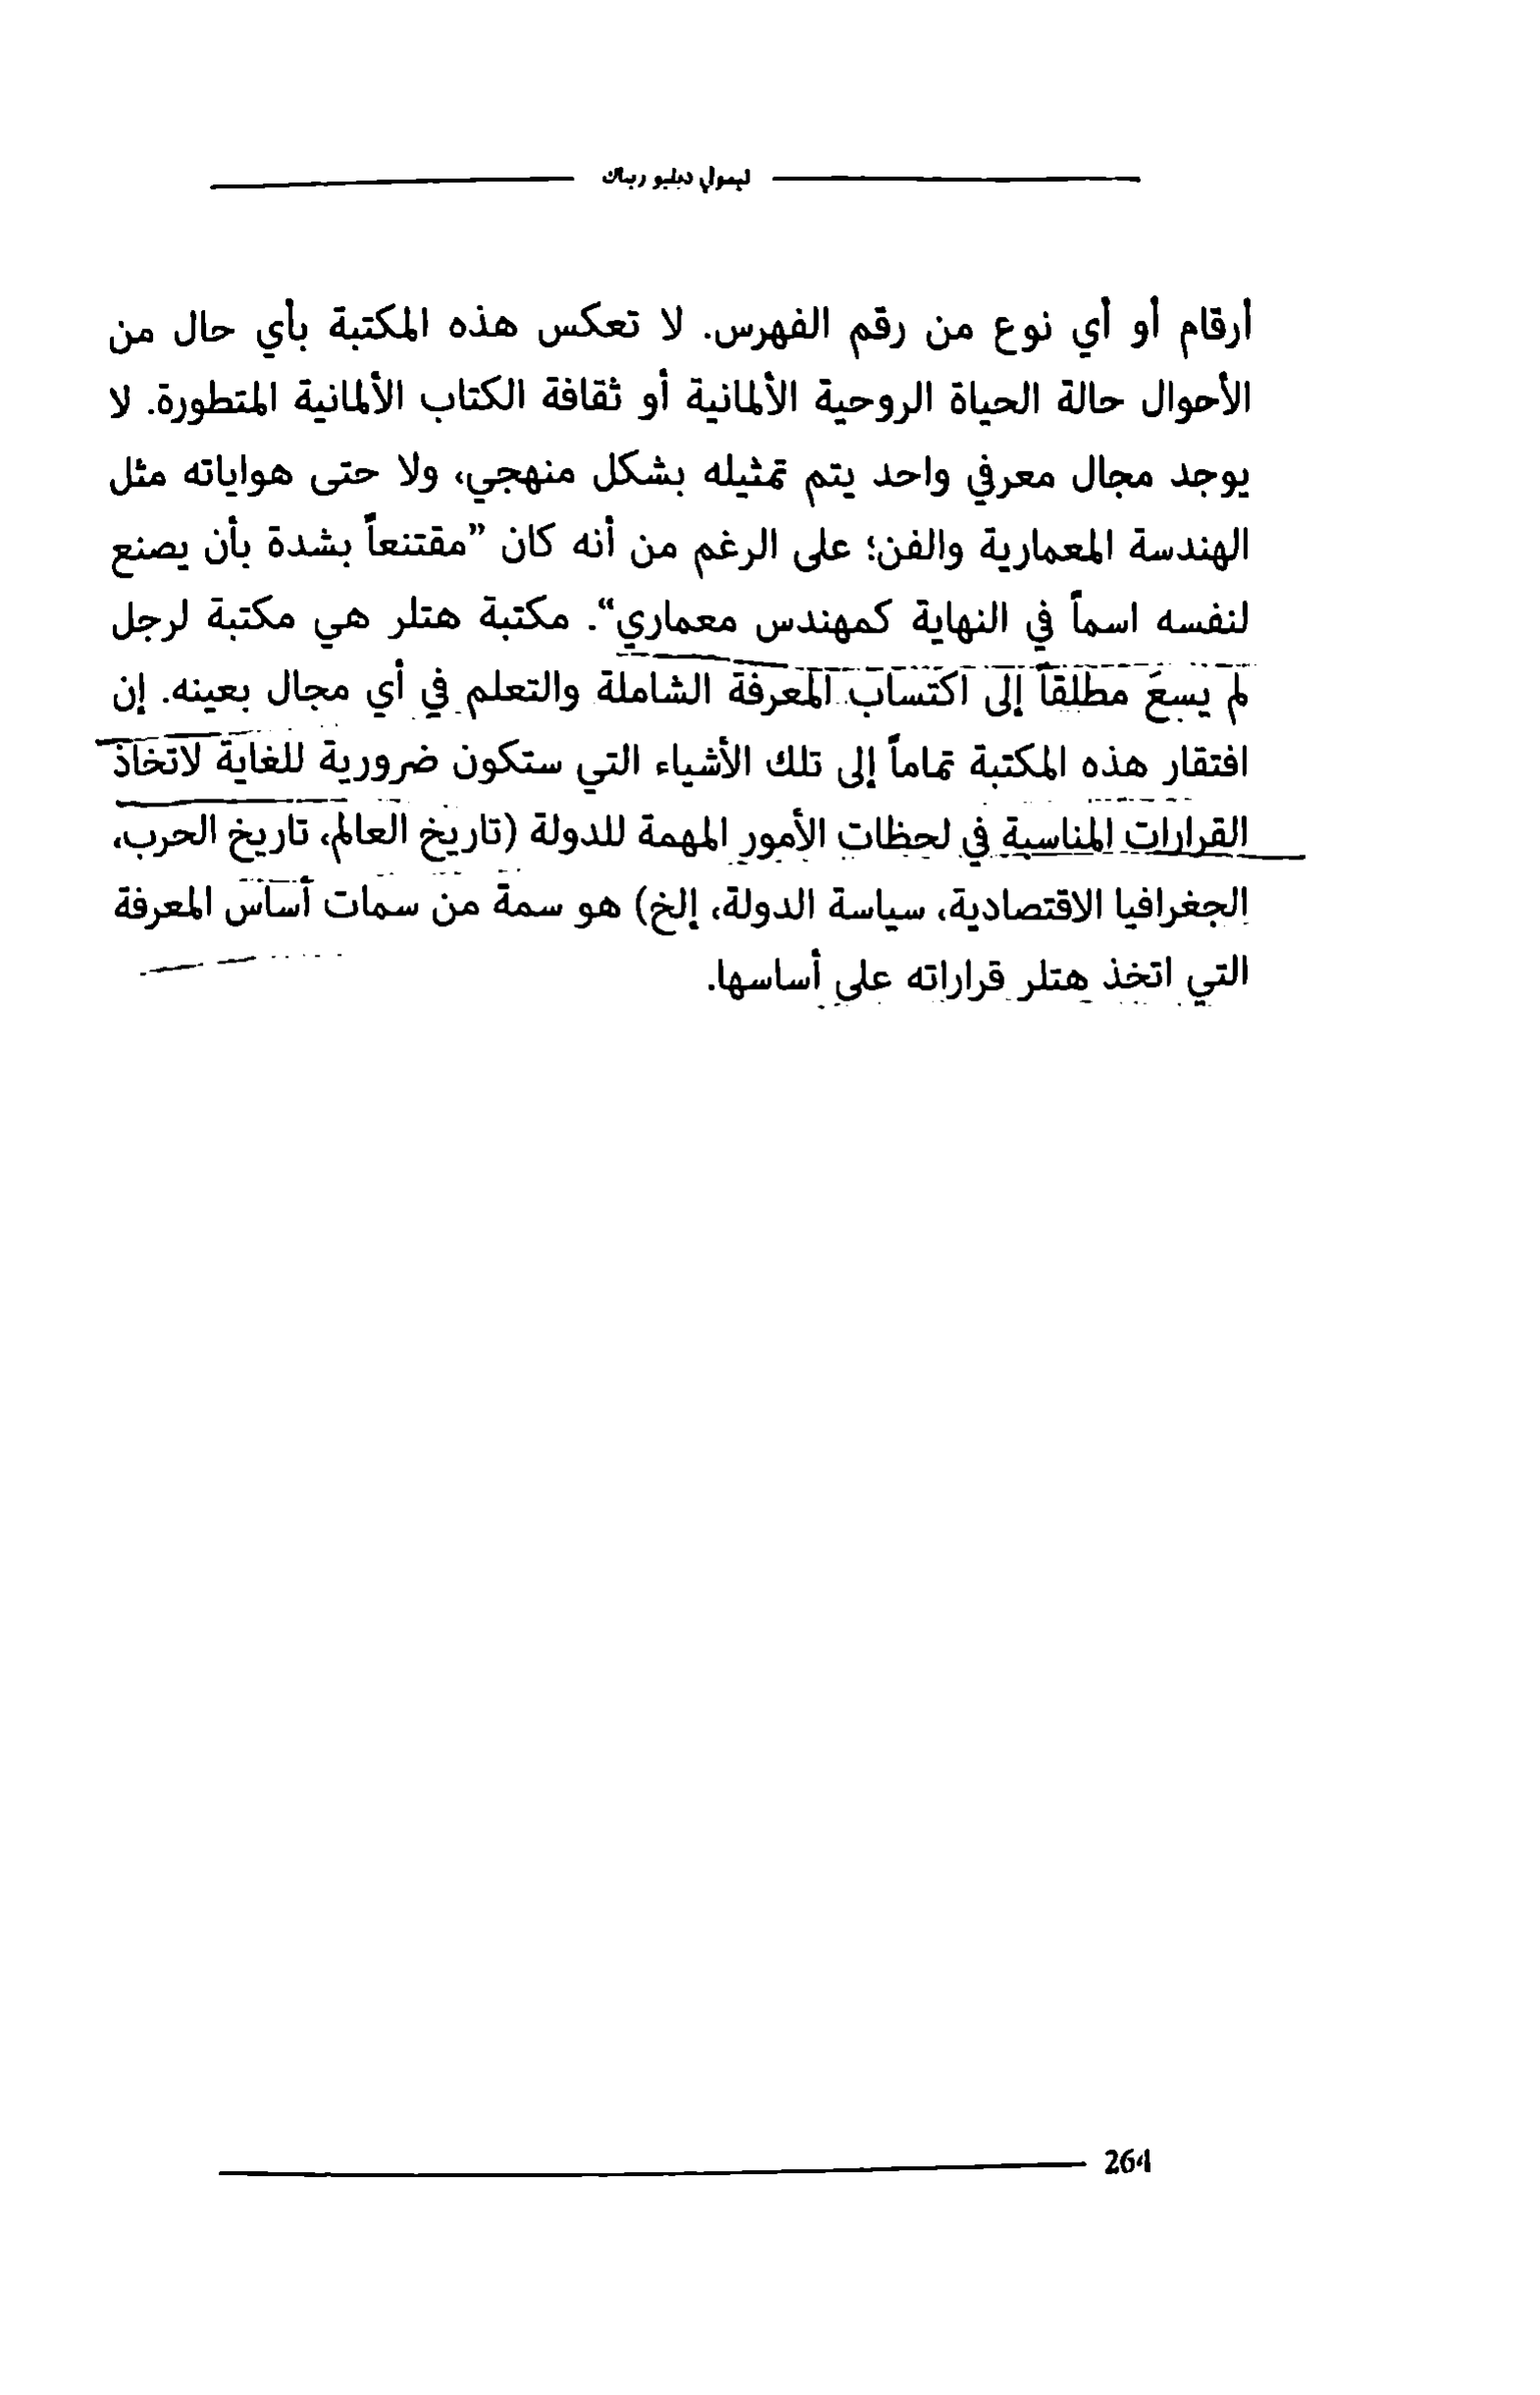 تيموثي دبليو ريباك
أرقام أو أي نوع من رقم الفهرس. لا تعكس هذه المكتبة بأي حال من
الأحوال حالة الحياة الروحية الألمانية أو ثقافة الكتاب الألمانية المتطورة. لا
يوجد مجال معرفي واحد يتم تمثيله بشكل منهجي، ولا حتى هواياته مثل
الهندسة المعمارية والفن؛ على الرغم من أنه كان ”مقتنعاً بشدة بأن يصنع
لنفسه اسماً في النهاية كمهندس معماري“. مكتبة هتلر هي مكتبة لرجل
لم يسعَ مطلقاً إلى اكتساب المعرفة الشاملة والتعلم في أي مجال بعينه. إن
افتقار هذه المكتبة تماماً إلى تلك الأشياء التي ستكون ضرورية للغاية لاتخاذ
القرارات المناسبة في لحظات الأمور المهمة للدولة (تاريخ العالم، تاريخ الحرب،
الجغرافيا الاقتصادية، سياسة الدولة، إلخ) هو سمة من سمات أساس المعرفة
التي اتخذ هتلر قراراته على أساسها.
264